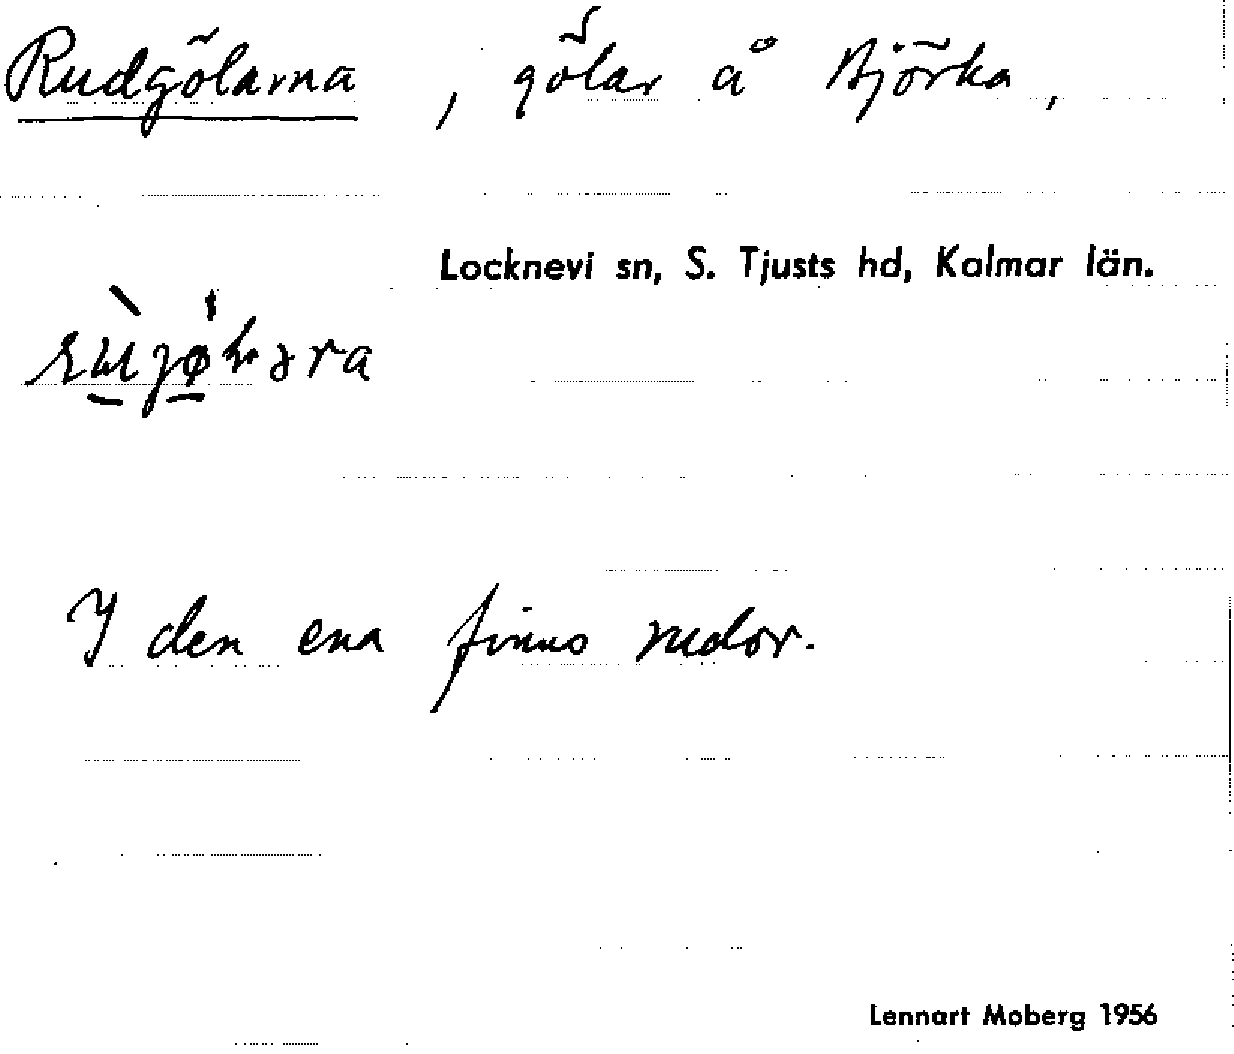 Rudgölarna, gölar å Björka,
Locknevi sn, S. Tjusts hd, Kalmar län.
I den ena finns rudor.
Lennart Moberg 1956